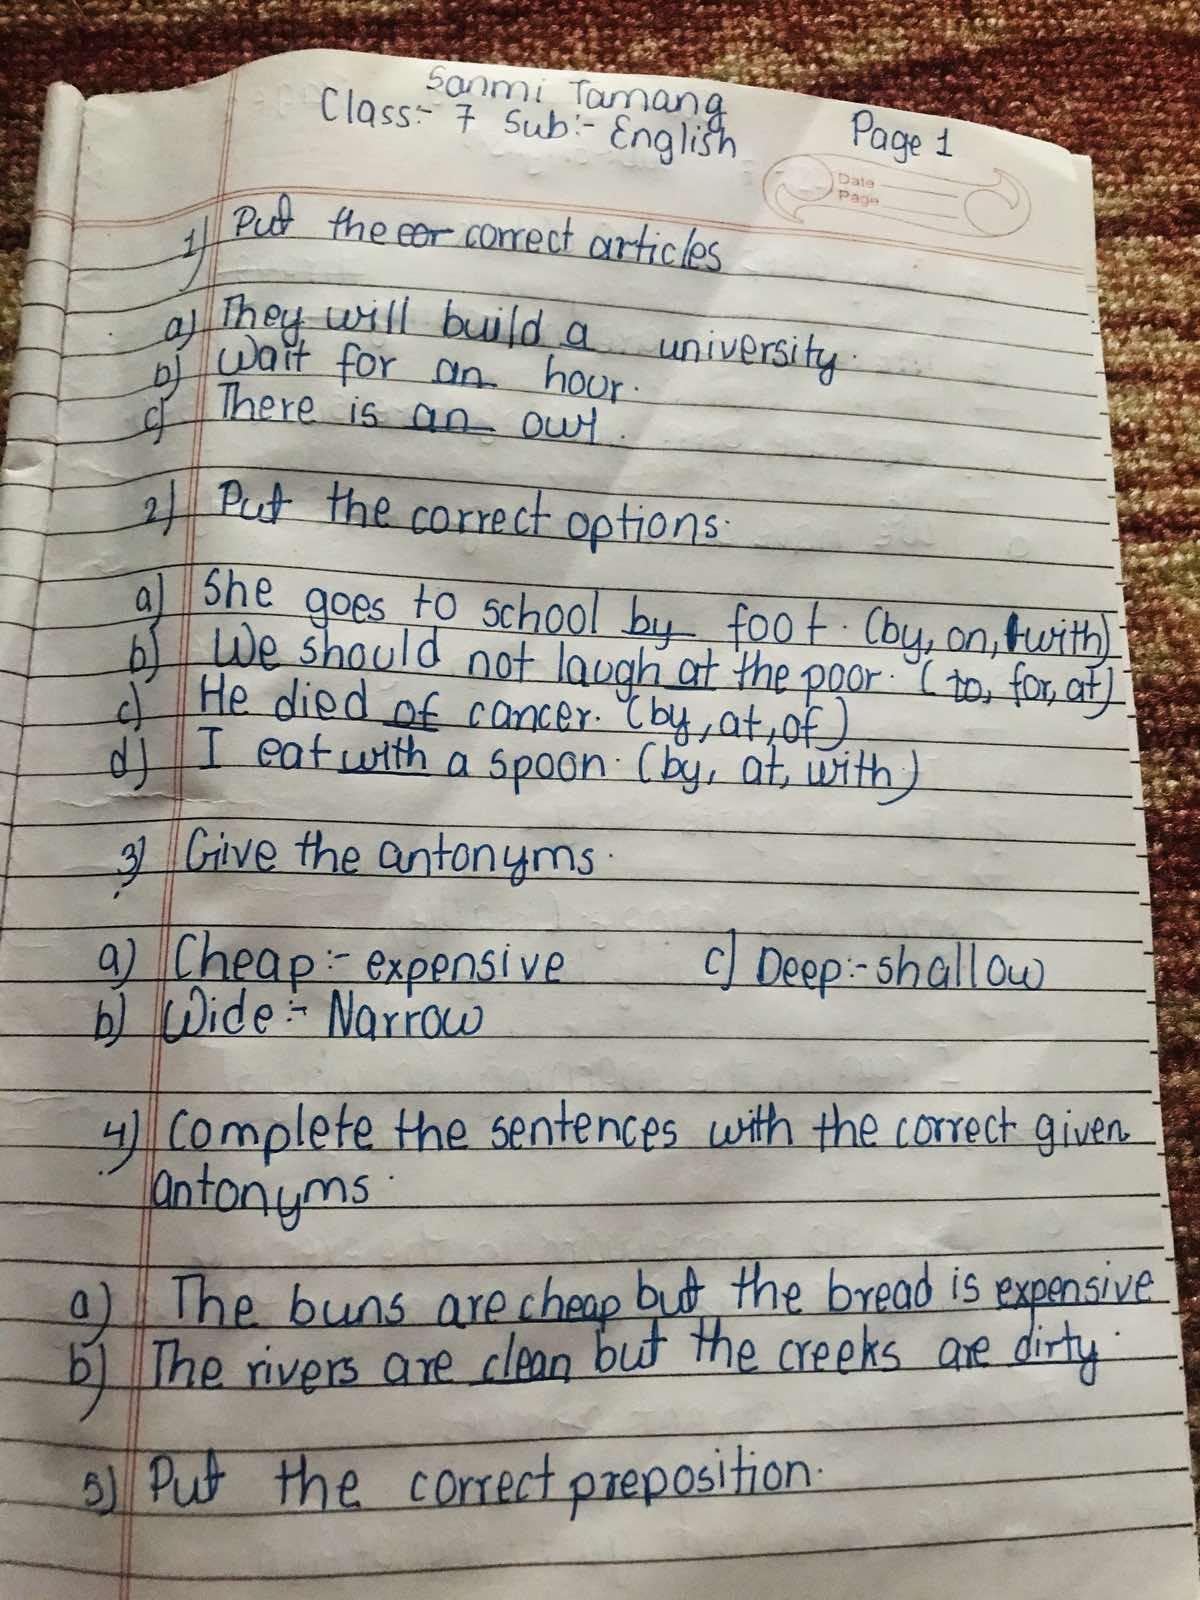 Sanmi Tamang
Class:- 7 Sub:- English
Page 1
Date
Page
1) Put the cor correct articles
a) They will build a university.
b) Wait for an hour.
c) There is an owl.
2) Put the correct options.
a) She goes to school by foot. (by, on, with)
b) We should not laugh at the poor. (to, for, at)
c) He died of cancer. (by, at, of)
d) I eat with a spoon. (by, at, with)
3) Give the antonyms.
a) Cheap:- expensive c) Deep:- shallow
b) Wide:- Narrow
4) Complete the sentences with the correct given
antonyms.
a) The buns are cheap but the bread is expensive
b) The rivers are clean but the creeks are dirty.
5) Put the correct preposition.